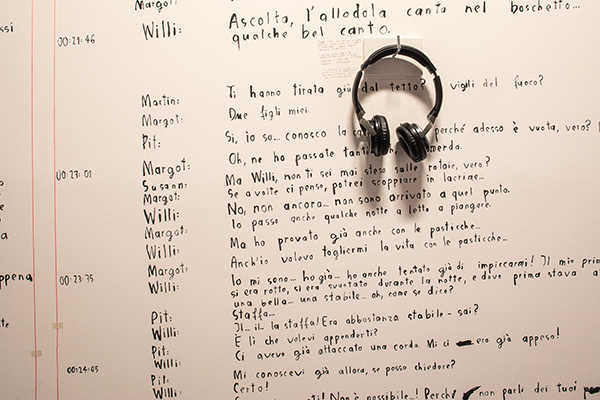 Margot:
ssi
00:21:46
Willi:
Ascolta, l'allodola canta nel boschetto...
qualche bel canto.
Martin:
Ti hanno tirata giù dal tetto? vigili del fuoco?
Margot:
Due figli miei.
Pit:
Sì, io su... conosco la perché adesso è vuota, vero?
Oh, ne ho passate merda.
00:23:01
Margot:
Ma Willi, non ti sei mai steso sulle rotaie, vero?
Susann:
Se a volte ci penso, potrei scoppiare in lacrime...
Margot:
No, non ancora... non sono arrivato a quel punto.
Willi:
Io passo anche qualche notte a letto a piangere.
Margot:
Ma ho provato già anche con le pasticche...
Willi:
Anch'io volevo togliermi la vita con le pasticche...
ppena
00:23:35
Margot:
Io mi sono... ho già... ho anche tentato già di impiccarmi! Il mio
Willi:
si era rotto, si era svuotato durante la notte, e dove prima stava
una bella... una stabile... oh, come se dice?
Pit:
Staffa...
Willi:
Il... il... la staffa! Era abbastanza stabile - sai?
Pit:
E lì che volevi appenderti?
Willi:
Ci avevo già attaccato una corda. Mi ci ero già appeso!
00:24:05
Pit:
Mi conoscevi già allora, se posso chiedere?
Willi:
Certo!
Non è possibile...! Perché non parli dei tuoi